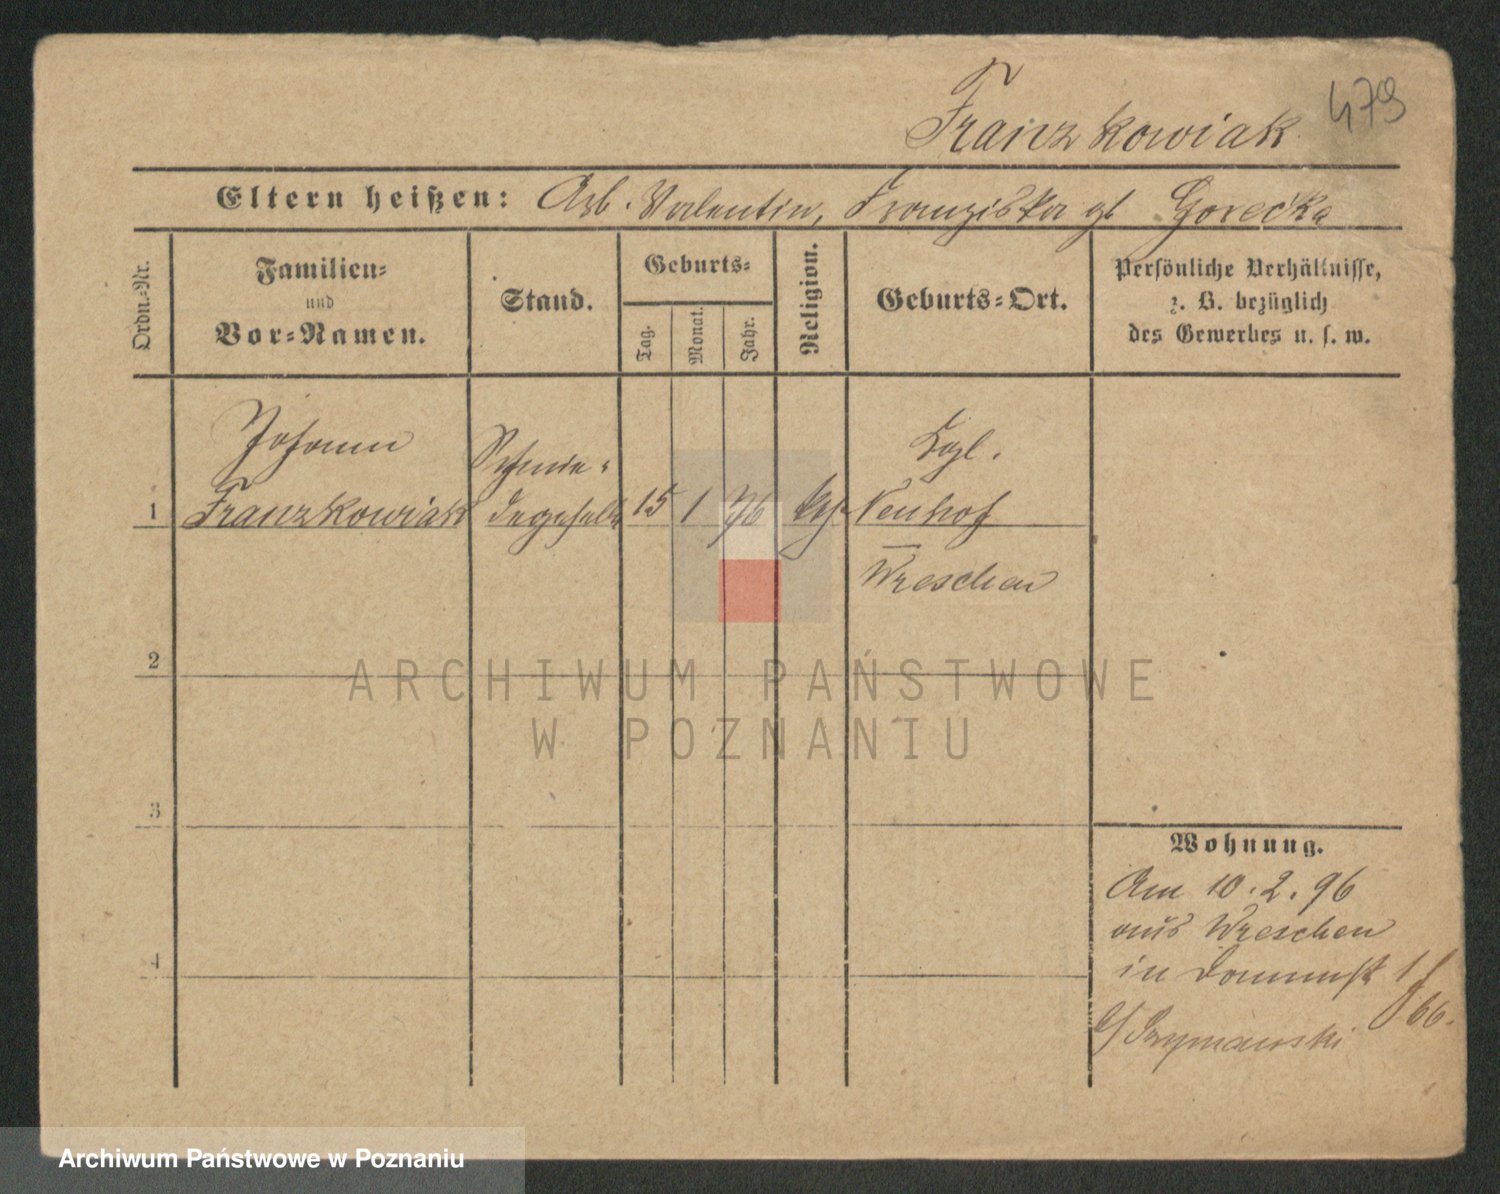 Franzkowiak
479
Eltern heißen: Arb. Valentin, Franziska gb Gorecka
Ordn.-Nr.
Familien-
und
Vor-Namen.
Stand.
Geburts-
Tag.
Monat.
Jahr.
Religion.
Geburts-Ort.
Persönliche Verhältnisse,
z. B. bezüglich
des Gewerbes u. s. w.
Johann
Schmie-
Kgl.
1 Franzkowiak degeselle 15 1 76 kth. Neuhof
Wreschen
2
3
4
Wohnung.
Am 10.2.96
aus Wreschen
in Dominik 1
b/ Szymanski 66.
ARCHIWUM PAŃSTWOWE
W POZNANIU
Archiwum Państwowe w Poznaniu